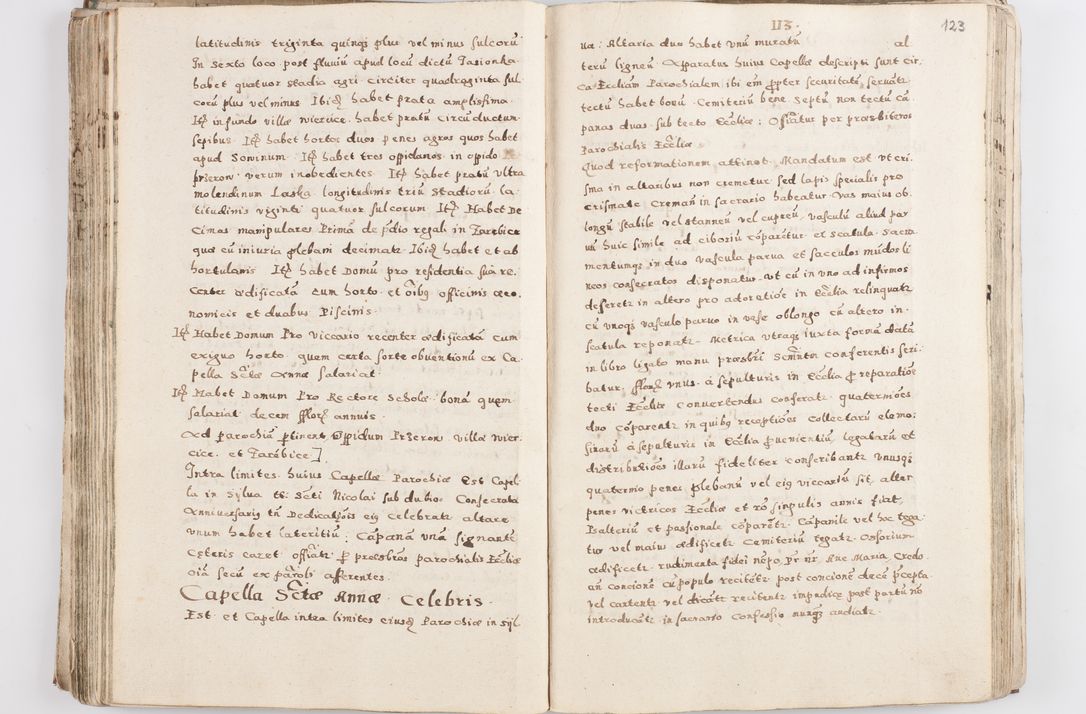 latitudinis triginta quinq; plus vel minus sulcorū
In Sexto loco post fluviū apud locū dictū Jasionka
habet quatuor stadia agri circiter quadraginta sul
corū plus vel minus Ibidę habet prata amplissima
Itę in fundo villæ Wiercice habet pratū circū ductum
sepibus Itę habet hortos duos penes agros quos habet
apud Sominum Itę habet tres oppidanos in oppido
przerow verum inobedientes Itę habet pratū ultra
molendinum Laska longitudinis triū stadiorū la
titudinis viginti quatuor sulcorum Itę Habet De
cimas manipulares Prima de pdio regali in Zarebice
quæ cū iniuria plebani decimatr Ibidę habet et ab
hortulanis Itę habet Domū pro residentia sua re
center ædificatā cum horto et oībq officinis œco
nomicis et duabus Piscinis
Itę Habet Domum Pro Viccario recenter ædificatā cum
exiguo horto quem certa sorte obventionū ex Ca
pella Sctæ Annæ salariat
Itę Habet Domum Pro Rectore Scholæ bonā quem
salariat decem fflor annuis
Ad parochiā ptinent Oppidum Przerow villæ Wier
cice et Zarabice]
Intra limites huius Capellæ Parochiæ Est Capel
la in Sylva tt Scti Nicolai sub dubio Consecrata
Anniversariq tn Dedicatiōis eiq celebratr altare
vnum habet lateritiū; Capanā vnā signante
Ceteris caret offiatr p præsbrōs parochialis Ecclīæ
oīa secū ex paroli afferentes
Capella Sctæ Annæ Celebris
Est et Capella intra limites eiusdę Parochiæ in syl
113
123
ua: Altaria duo habet vnū muratū al
terū ligneū Apparatus huius Capellæ descripti sunt cir
ca Eccliam Parochialem ibi em ppter securitatē servātr
tectū habet bonū Cemiteriū bene septū non tectū Cā
panas duas sub tecto Ecclīæ: Offiātur per præsbiteros
Parochialis Ecclīæ
Quod reformationem attinet Mandatum est vt cri
sma in altaribus non cremetur sed lapis specialis pro
crismate Cremandi in sacrario habeatur Vas maius ob
longū stabile vel stanneū vel cupreū vasculū aliud par
uū huic simile ad ciboriū cōparētur et scatula Sacra
mentumqȝ in duo vascula parua et sacculos mūdos li
neos consecratos disponatur vt cū in vno ad infirmos
deferetr in altero pro adoratiōe in Ecclīa relinquatr
cū vnoqȝ vasculo paruo in vase oblongo cū altero in
scatula reponatr Metrica vtraqȝ iuxta formā datā
in libro ligato manu præsbri Scmntm conferentis scri
batur fflore vnus à sepulturis in Ecclīa p reparatiōe
tecti Ecclīæ convertendus conferatr quaterniōes
duo cōparentr in quibq receptiōes collectarū elemo
sinarū à sepulturis in Ecclīa pvenientiū legatarū et
distributiōes illarū fideliter conscribantr Vnusqȝ
quaternio penes plebanū vel eiq viccariū sit alter
penes victricos Ecclīæ et rō singulis annis fiat
Psalteriū et passionale cōparētr Cāpanile vel hoc tega
tur vel maius ædificetr Cemiteriū tegatr Ossorium
ædificetr rudimenta fidei nēpe Pr nr Ave Maria Credo
an concionē cū populo recitētr post concionē decē pcepta
vel cantentr vel dicātr recitentr impudicæ post partū nō
introducātr in sacrario Confessio nunqȝ audiatr